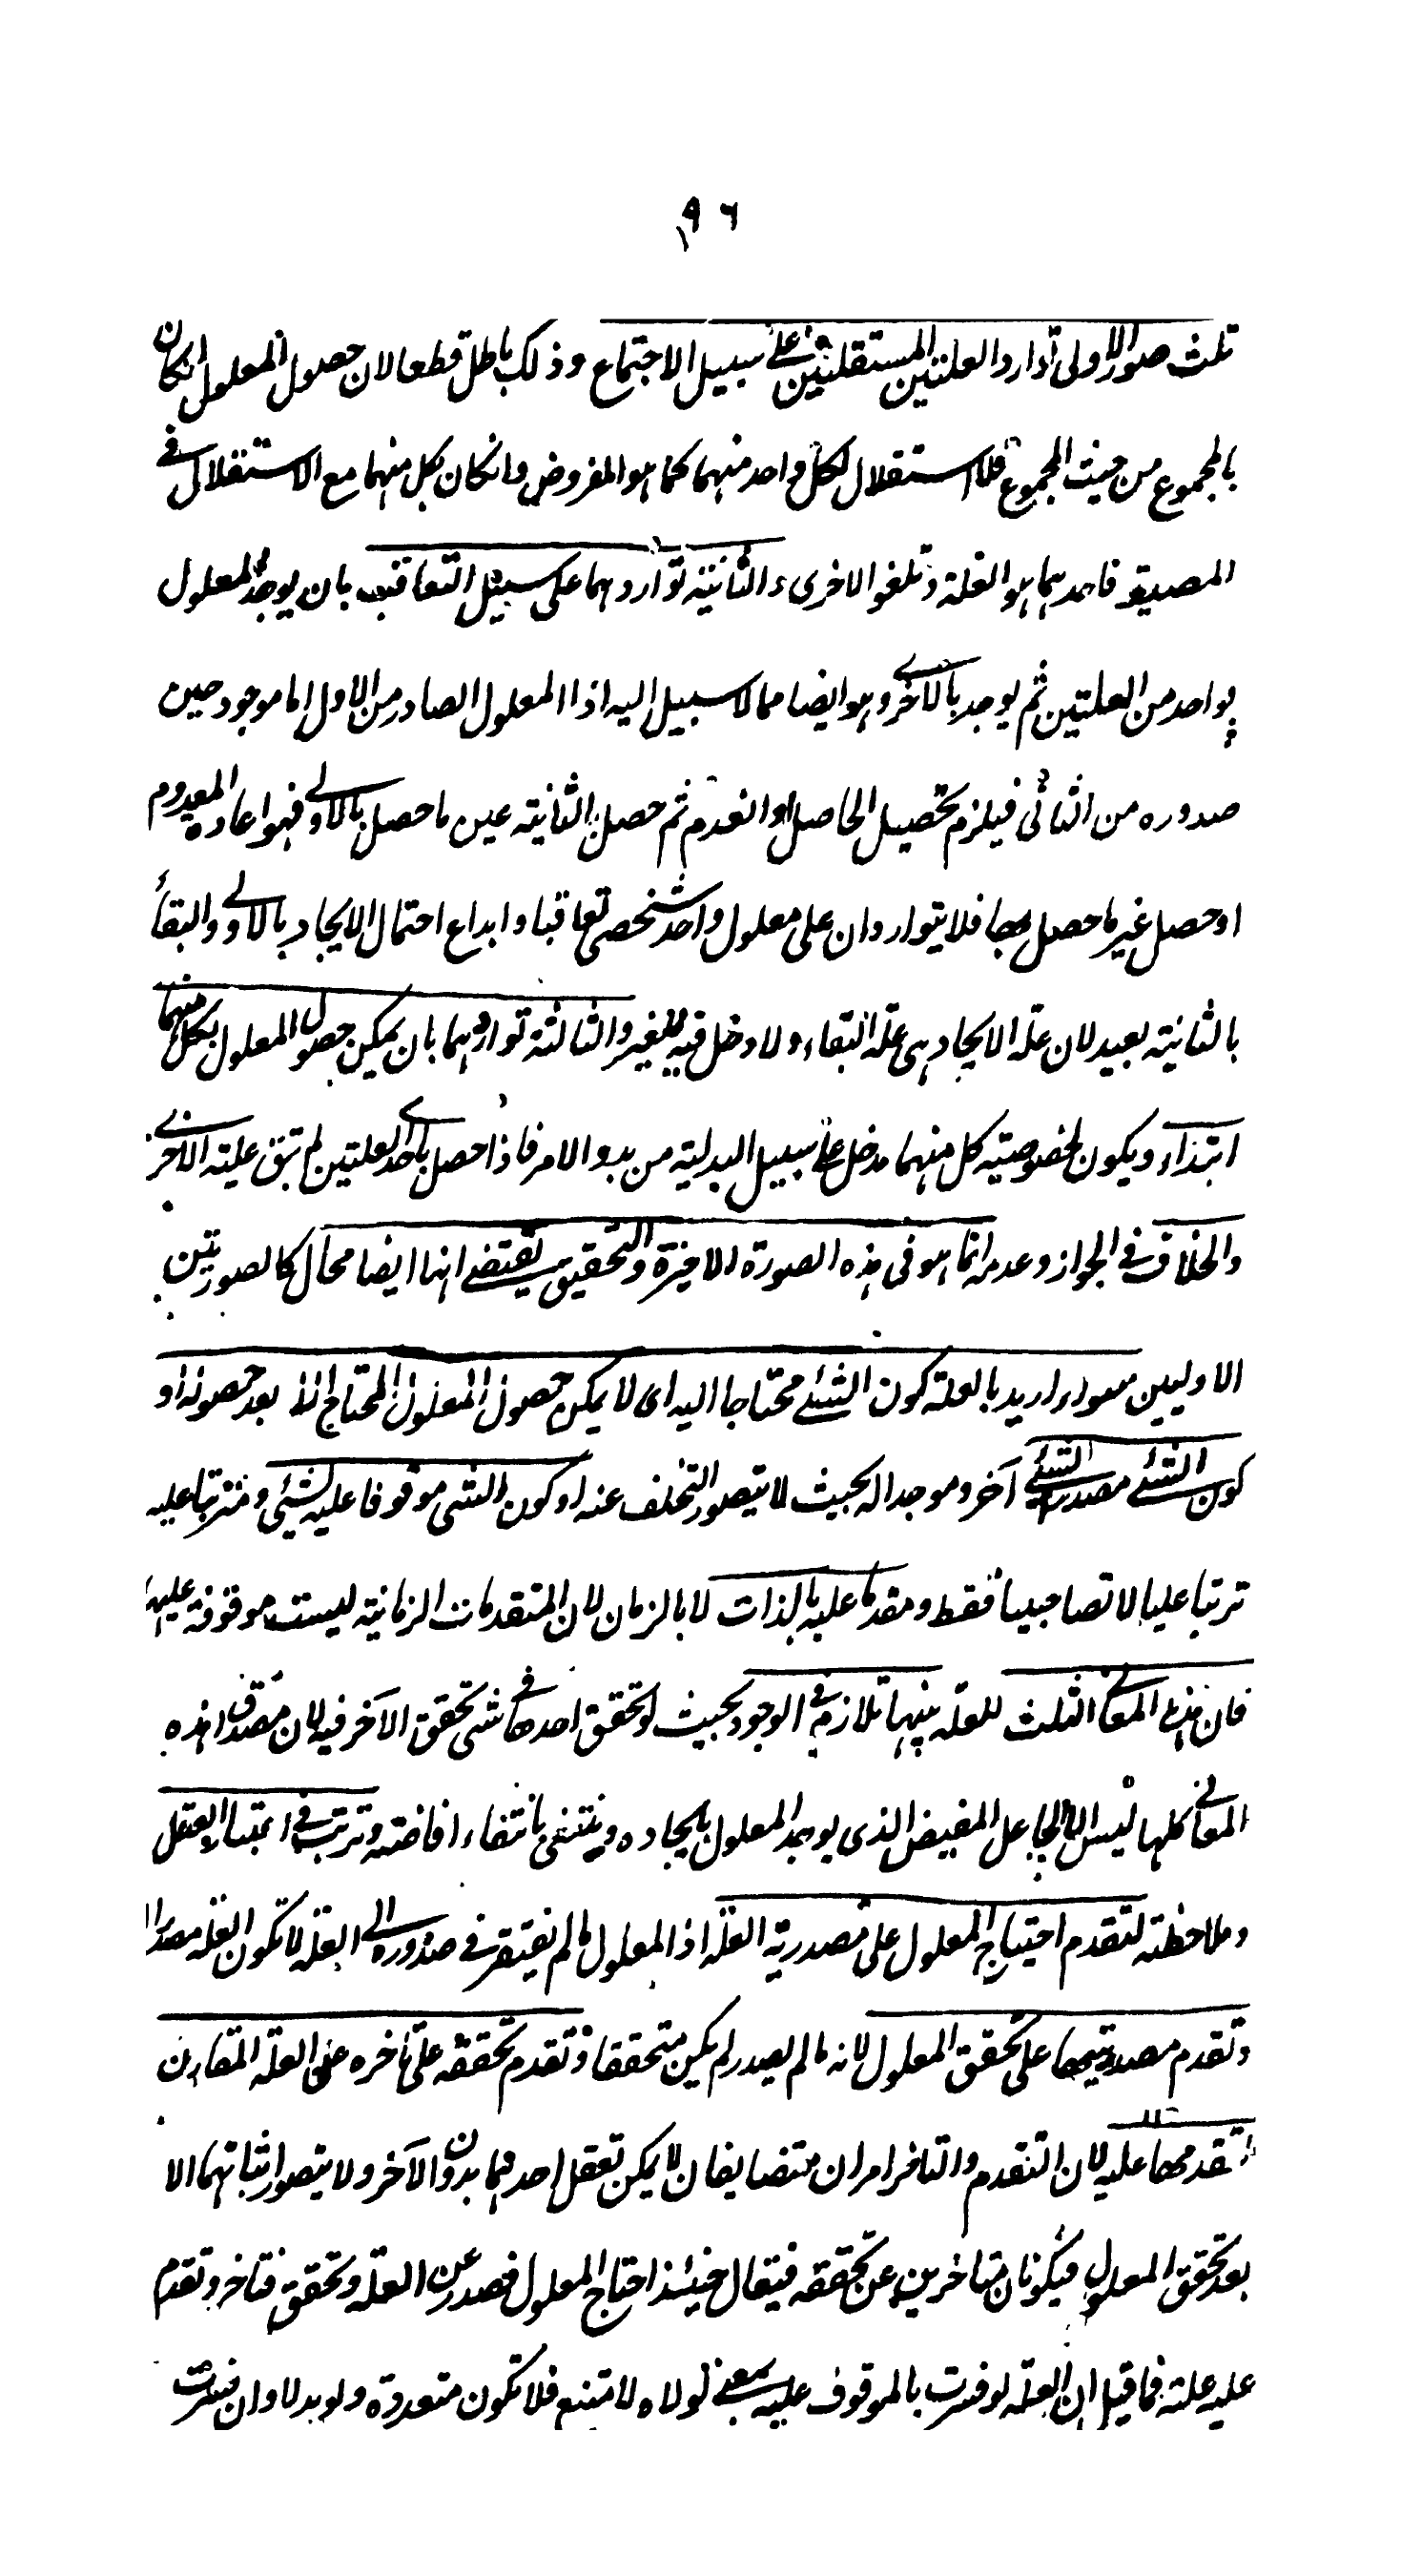 ٩٦
ثلث صور الاولى توارد العلتين المستقلتين على سبيل الاجتماع وذلك باطل قطعا لان حصول المعلول انكان
بالمجموع من حيث المجموع فلا استقلال لكل واحد منهما كما هو المفروض وانكان بكل منهما مع الاستقلال فى
المصدرية فاحدهما هو العلة وتلغو الاخرى والثانية تواردهما على سبيل التعاقب بان يوجد المعلول
بواحد من العلتين ثم يوجد بالاخرى وهو ايضا مما لا سبيل اليه اذ المعلول الصادر من الاول اما موجود حين
صدوره من الثانى فيلزم تحصيل الحاصل او انعدم ثم حصل بالثانية عين ما حصل بالاولى فهو اعادة المعدوم
او حصل غير ما حصل بها فلا يتواردان على معلول واحد شخصى تعاقبا وابداع احتمال الايجاد بالاولى والبقاء
بالثانية بعيد لان علة الايجاد هى علة البقاء ولا دخل فيه للغير والثالثة تواردهما بان يمكن حصول المعلول بكل منهما
ابتداء ويكون لخصوصية كل منهما مدخل على سبيل البدلية من بدو الامر فاذا حصل باحد العلتين لم تبق علية الاخرى
والخلاف فى الجواز وعدمه انما هو فى هذه الصورة الاخيرة والتحقيق يقتضى انها ايضا محال كالصورتين
الاوليين سواء اريد بالعلة كون الشئ محتاجا اليه اى لا يمكن حصول المعلول المحتاج الا بعد حصوله او
كون الشئ مصدرا لشئ آخر وموجدا له بحيث لا يتصور التخلف عنه او كون الشئ موقوفا عليه لشئ ومترتبا عليه
ترتبا عليا لا تصاحبيا فقط ومقدما عليه بالذات لا بالزمان لان المتقدمات الزمانية ليست موقوفة عليها
فان هذه المعانى الثلث للعلة بينها تلازم فى الوجود بحيث لو تحقق احدها فى شئ تحقق الآخر فيه لان مصداق هذه
المعانى كلها ليس الا الجاعل المفيض الذى يوجد المعلول بايجاده وينتفى بانتفاء افاضته وترتب فى اعتبار العقل
وملاحظته لتقدم احتياج المعلول على مصدرية العلة اذ المعلول ما لم يفتقر فى صدوره الى العلة لا تكون العلة مصدرا
وتقدم مصدريتها على تحقق المعلول لانه ما لم يصدر لم يكن متحققا وتقدم تحققه على تأخره عن العلة المقارن
لتقدمها عليه لان التقدم والتاخر امران متضايفان لا يمكن تعقل احدهما بدون الآخر ولا يتصور اثباتهما الا
بعد تحقق المعلول فيكونان متاخرين عن تحققه فيقال حينئذ احتاج المعلول فصدر عن العلة وتحقق فتاخر وتقدم
عليه علته فما قيل ان العلة لو فسرت بالموقوف عليه بمعنى لولاه لامتنع فلا تكون متعددة ولو بدلا وان فسرت